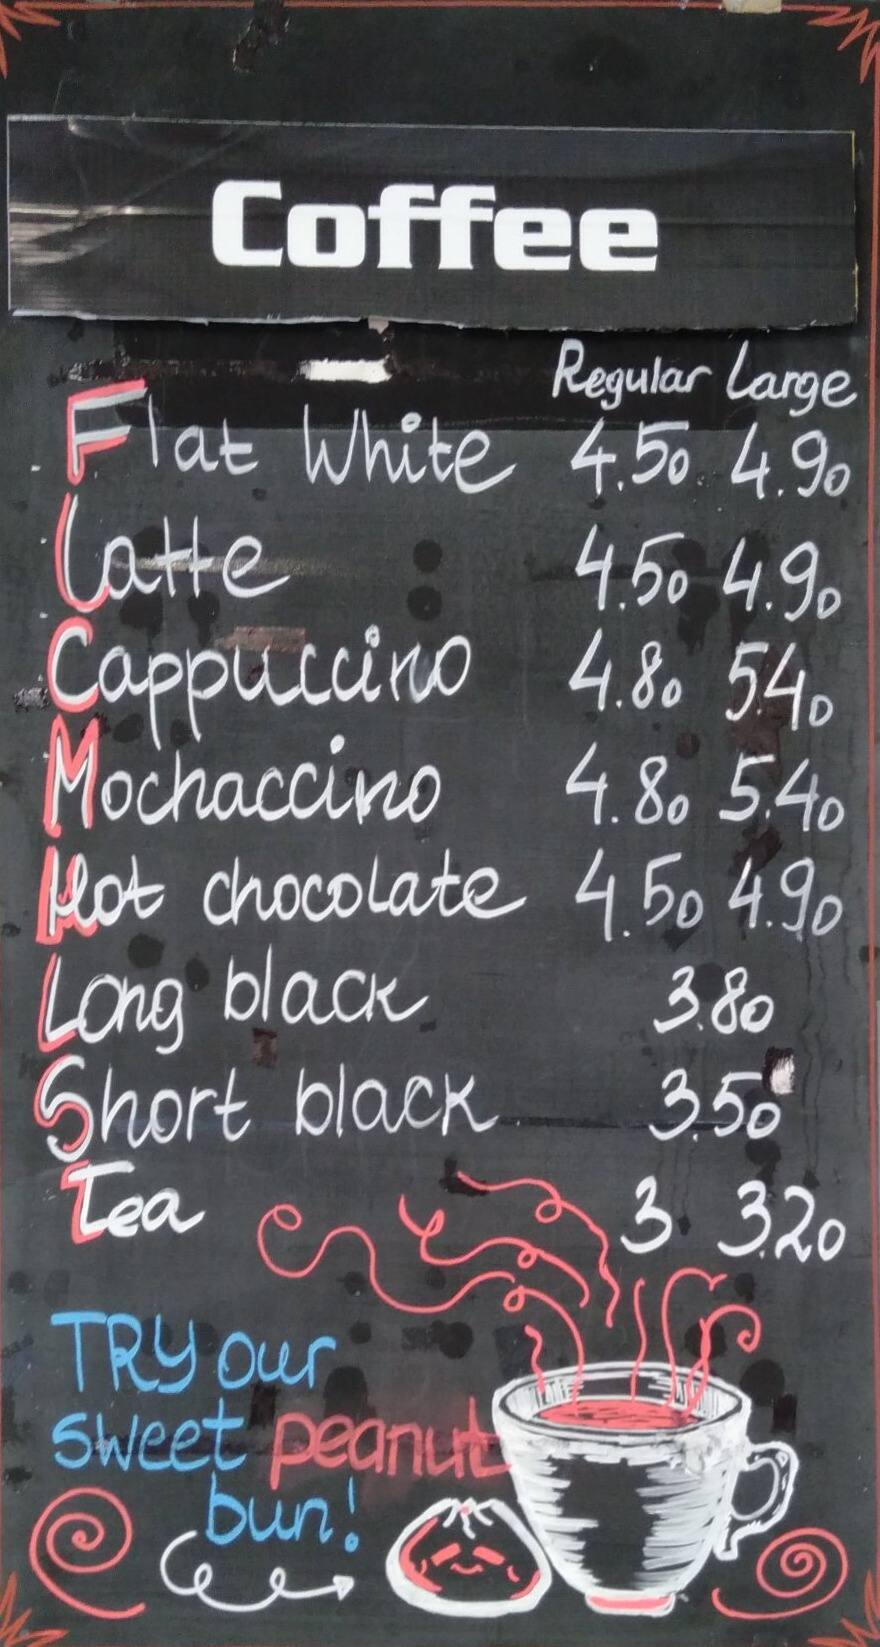 Coffee
Regular Large
Flat White 4.50 4.90
Latte 4.50 4.90
Cappuccino 4.80 5.40
Mochaccino 4.80 5.40
Hot chocolate 4.50 4.90
Long black 3.80
Short black 3.50
Tea 3 3.20
TRY our
sweet peanut
bun!